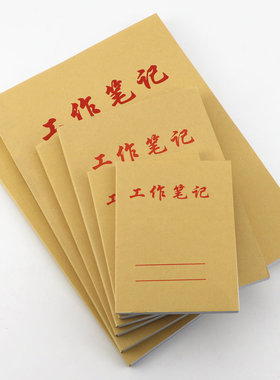 工作笔记
工作笔记
工作笔记